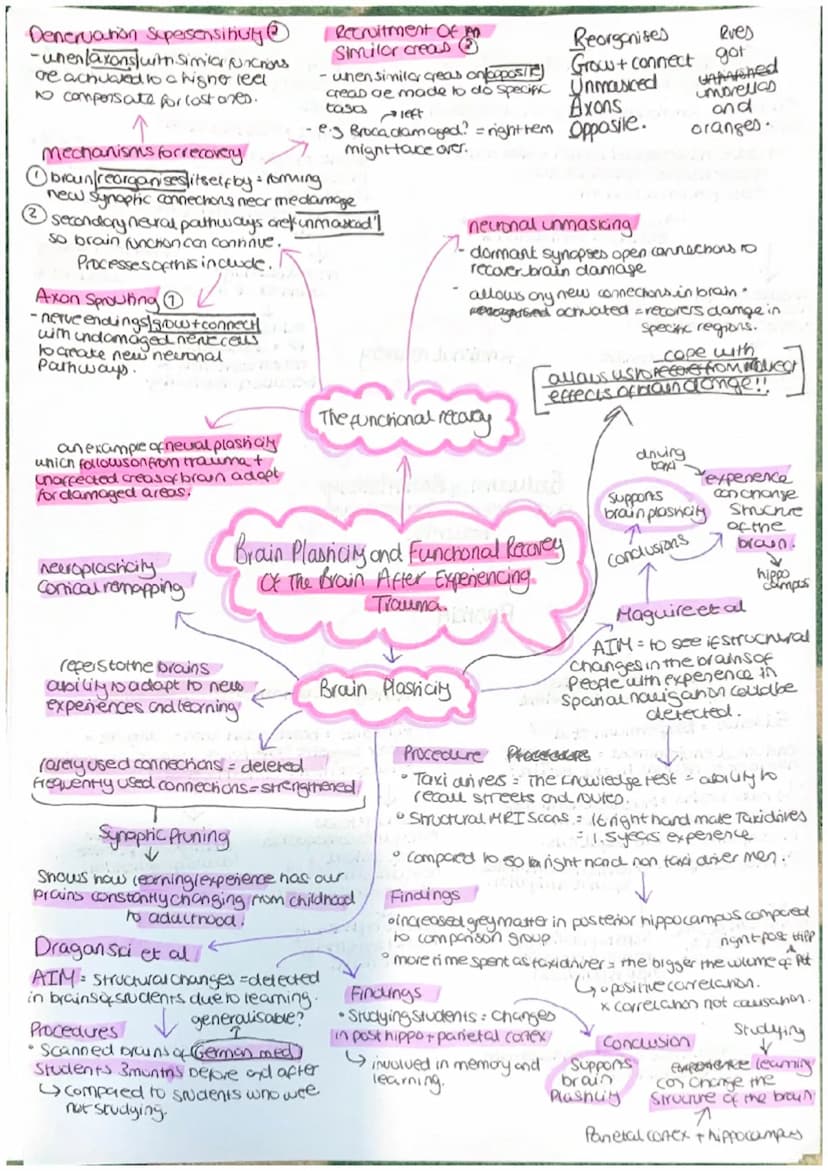 Denervation Supersensitivity ③
- when axons with similar functions
are activated to a higher level
to compensate for lost ones.
Recruitment of
similar areas ③
- when similar areas on opposite
areas are made to do specific
tasks
→ left
- e.g Broca damaged? = right hem
might take over.
Reorganises
Grow + connect
Unmasked
Axons
Opposite.
got
umbrellas
and
oranges.
mechanisms for recovery
① brain reorganises itself by = forming
new synaptic connections near the damage
② secondary neural pathways are 'unmasked'
so brain function can continue.
Processes of this include.
Axon Sprouting ①
- nerve endings grow + connect
with undamaged nerve cells
to create new neuronal
Pathways.
neuronal unmasking
- dormant synapses open connections to
recover brain damage
- allows any new connections in brain
activated = recovers damage in
specific regions.
cope with
allows us to recover from indirect
effects of brain damage!!
The functional recovery
an example of neural plasticity
which follows on from trauma +
unaffected areas of brain adapt
for damaged areas.
Brain Plasticity and Functional Recovery
Of The Brain After Experiencing
Trauma.
driving
taxi
experience
can change
structure
of the
brain.
hippo
campus
supports
brain plasticity
conclusions
neuroplasticity
Cortical remapping
Maguire et al
AIM = to see if structural
changes in the brains of
People with experience in
Spatial navigation could be
detected.
Brain Plasticity
refers to the brains
ability to adapt to new
experiences and learning
rarely used connections = deleted
frequently used connections = strengthened
Synaptic Pruning
Shows how learning/experience has our
brains constantly changing from childhood
to adulthood.
Procedure Procedures
• Taxi drivers = The knowledge test = ability to
recall streets and routes.
• Structural MRI Scans = 16 right hand male Taxi drivers
= 1.5 years experience
• Compared to 50 right hand non taxi driver men.
Findings
• increased grey matter in posterior hippocampus compared
to comparison group.
right post hipp
• more time spent as taxi driver = the bigger the volume of
↳ positive correlation.
x correlation not causation.
Draganski et al
AIM = Structural changes = detected
in brains of students due to learning.
generalisable?
Procedures
• Scanned brains of German med
students 3 months before and after
↳ compared to students who were
not studying.
Findings
• Studying students = changes
in post hippo + parietal cortex
↳ involved in memory and
learning.
Conclusion
Supports
brain
Plasticity
Studying
experience learning
can change the
Structure of the brain
Parietal cortex + hippocampus